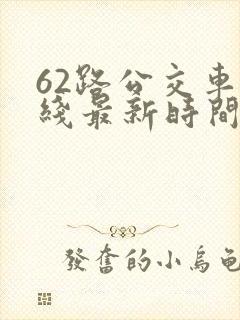 62路公交車
綫最新時間
發奮的小烏龜